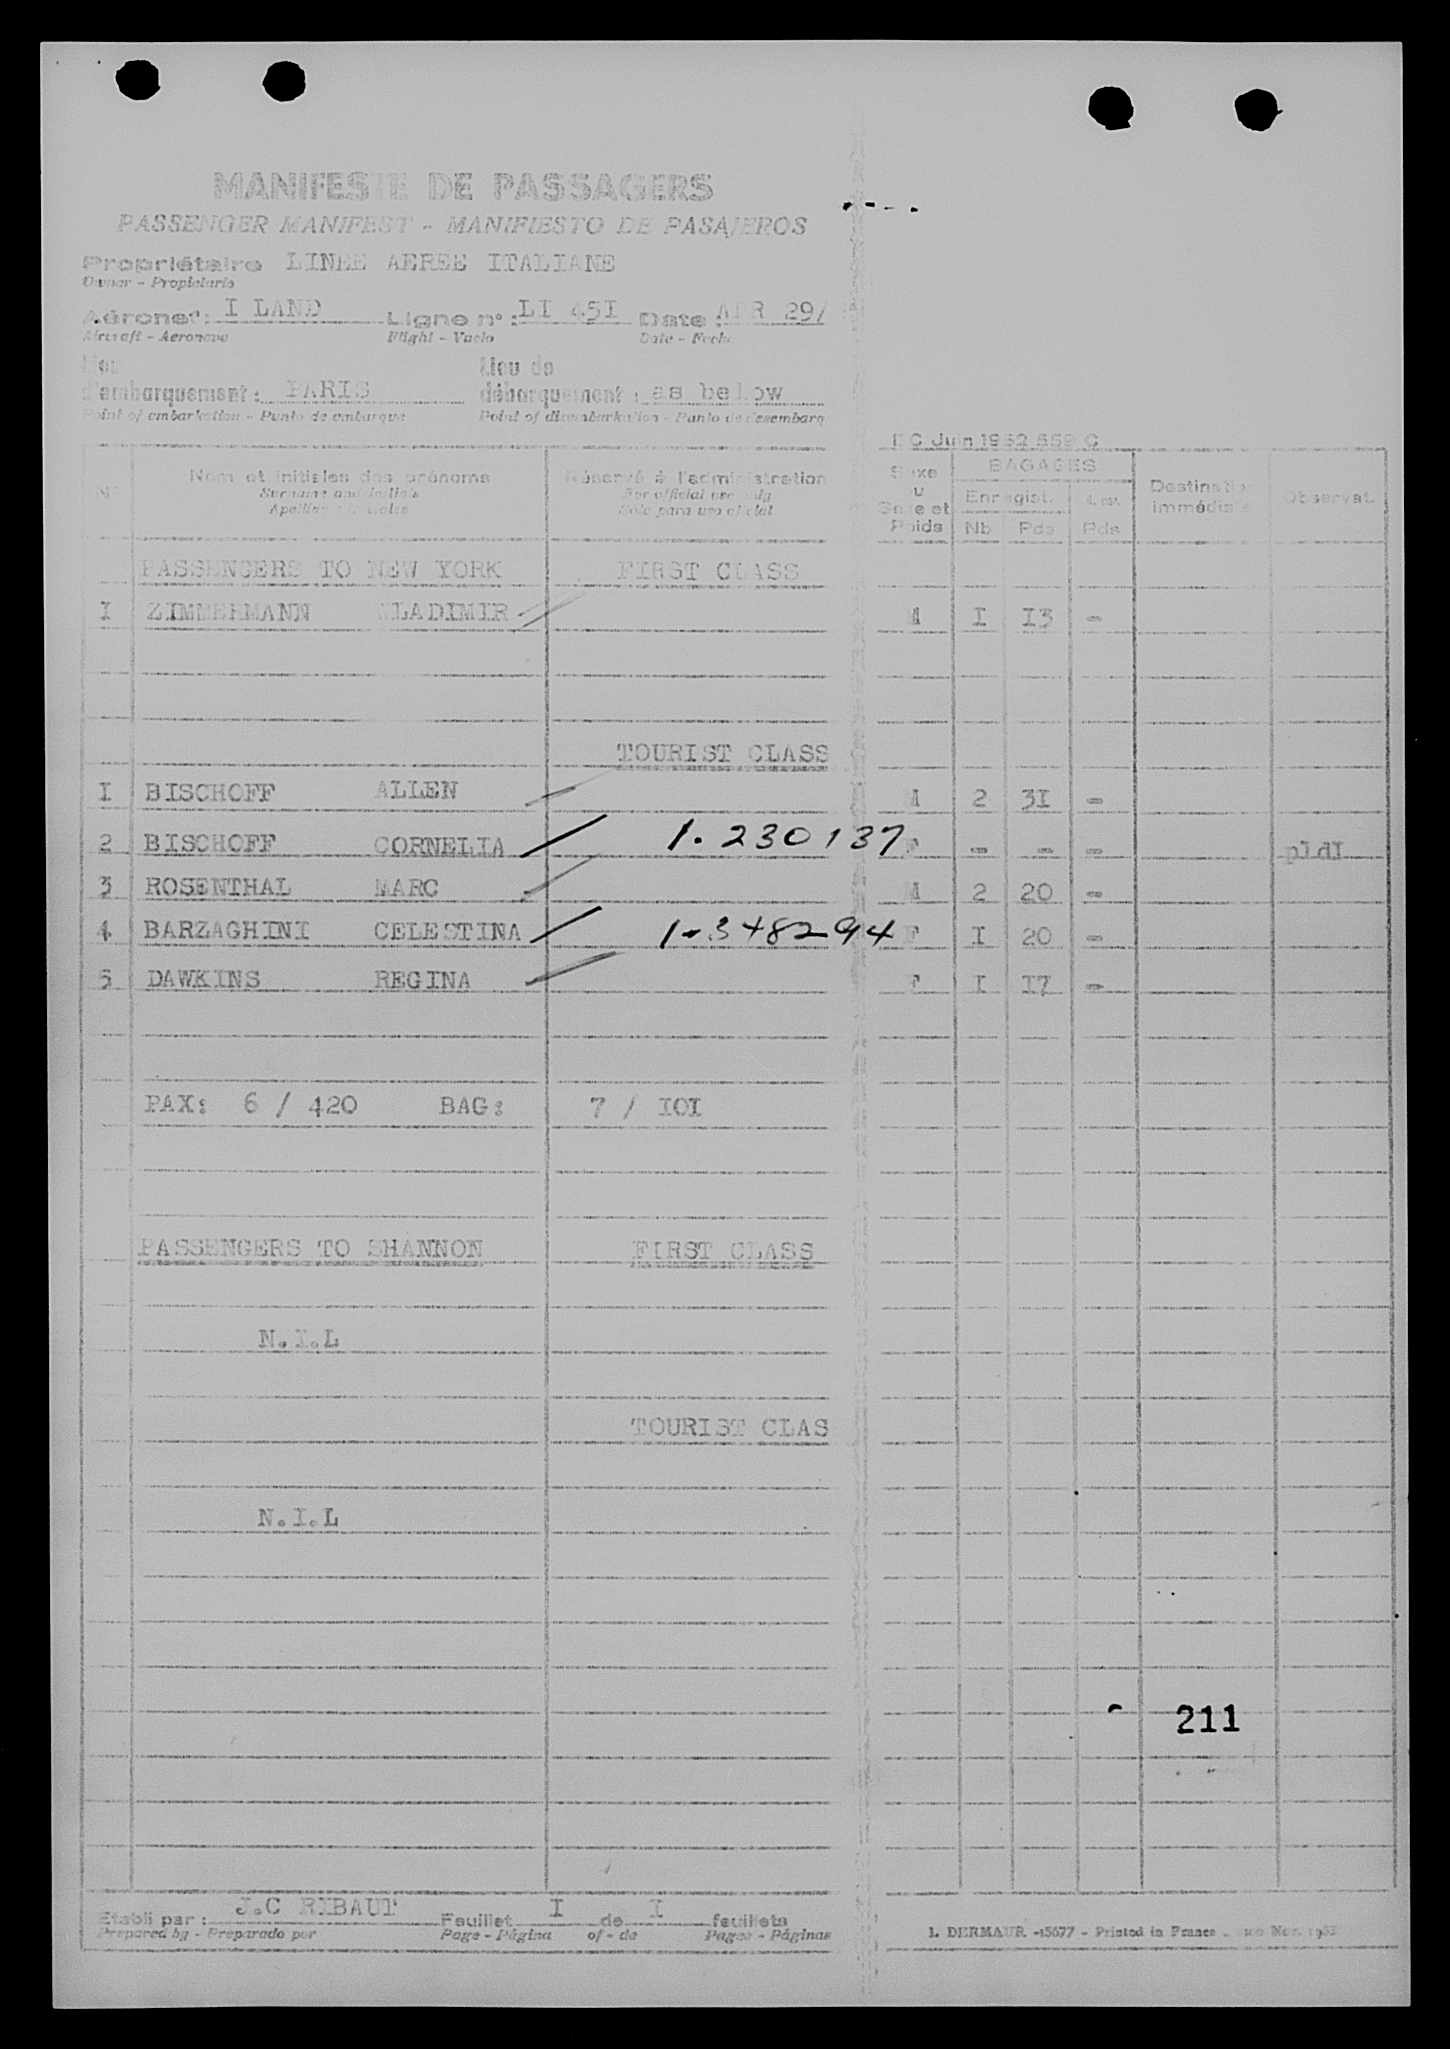 MANIFESTE DE PASSAGERS
PASSENGER MANIFEST - MANIFIESTO DE PASAJEROS
Propriétaire LINEE AEREE ITALIANE
Owner - Propietario
Aéronef : I LAND Ligne n° : LI 45I Date : APR 29/
Aircraft - Aeronave Flight - Vuelo Date - Fecha
Lieu Lieu de
d'embarquement : PARIS débarquement : as below
Point of embarkation - Punto de embarque Point of disembarkation - Punto de desembarq
Juin 1952 559 C
N° Nom et initiales des prénoms Réservé à l'administration Sexe BAGAGES Destination Observat.
Surname and initials For official use only ou Enregist. immédiate
Sólo para uso oficial et
Poids Nb Pds Pds
PASSENGERS TO NEW YORK FIRST CLASS
I ZIMMERMANN WLADIMIR M I I3 -
TOURIST CLASS
I BISCHOFF ALLEN M 2 3I -
2 BISCHOFF CORNELIA 1. 230137 F - - - pldI
3 ROSENTHAL MARC M 2 20 -
4 BARZAGHINI CELESTINA 1-348294 F I 20 -
5 DAWKINS REGINA F I I7 -
PAX: 6 / 420 BAG: 7 / IOI
PASSENGERS TO SHANNON FIRST CLASS
N.I.L
TOURIST CLAS
N.I.L
211
Etabli par : J.C RIBAUT Feuillet I de I feuillets
Prepared by - Preparado por Page - Página of - de Pages - Páginas
L. DERMAUR -15677 - Printed in France